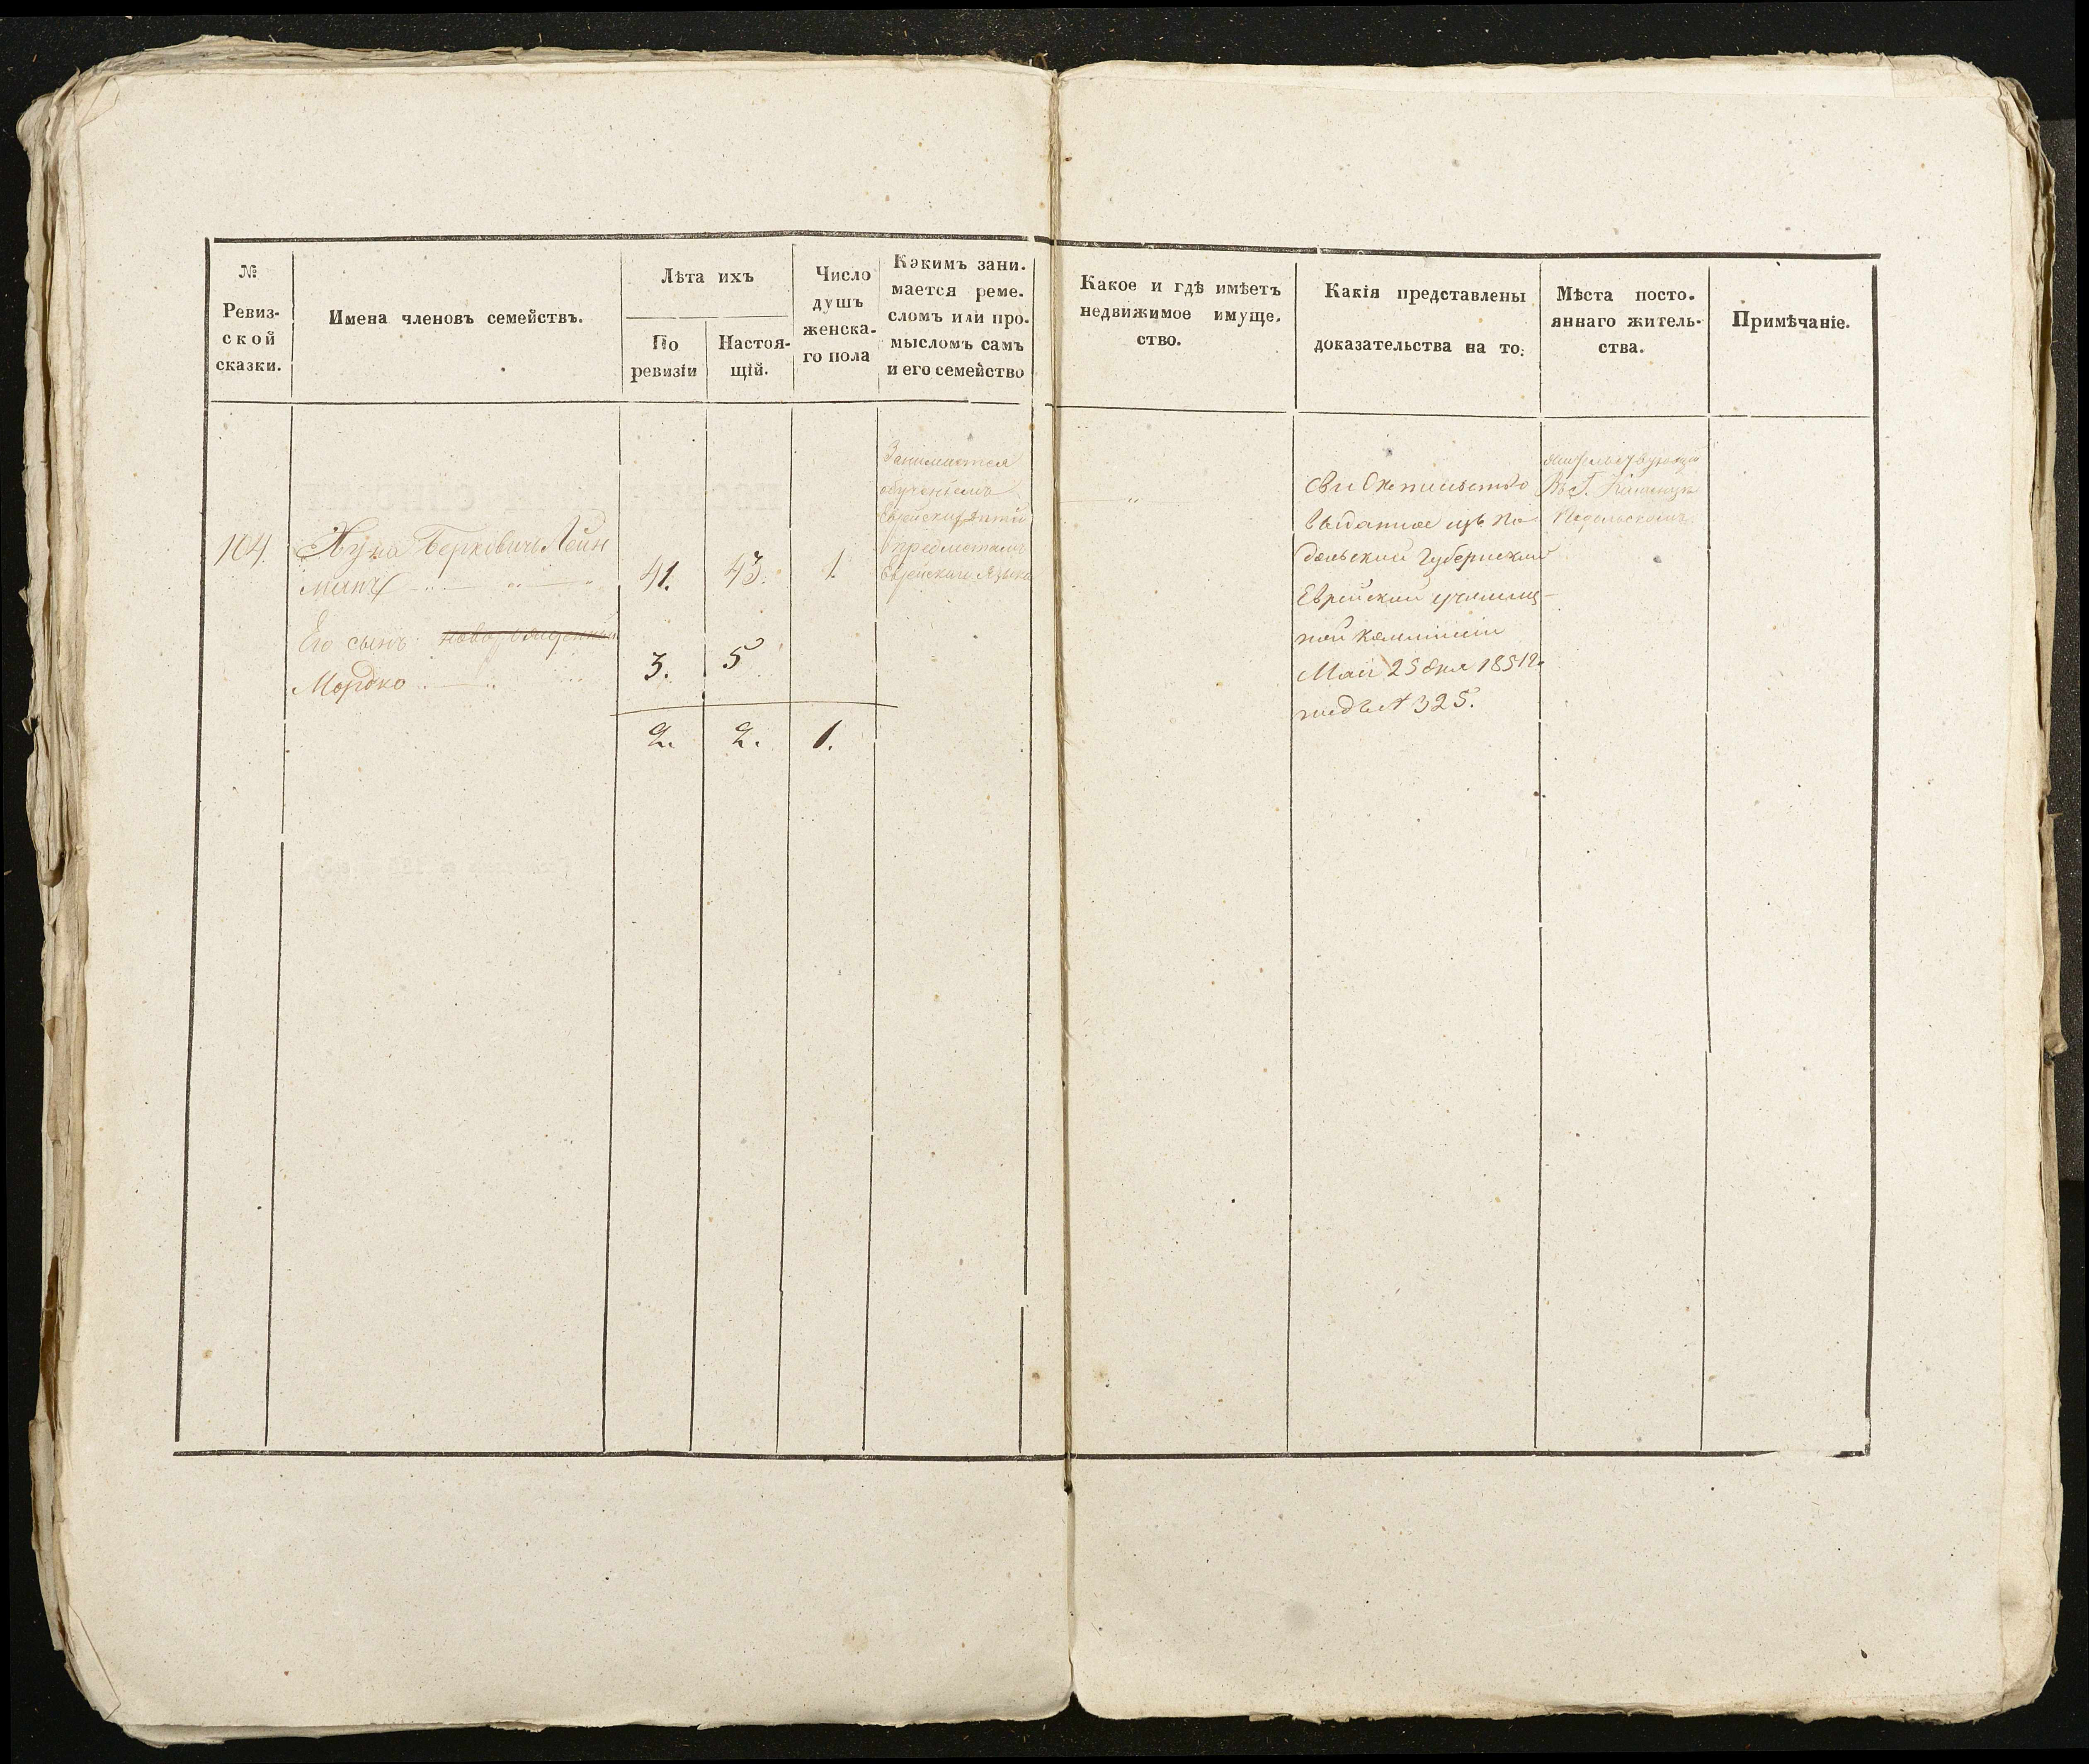 №
Ревиз-
ской
сказки.
Имена членовъ семействъ.
Лѣта ихъ
По
ревизіи
Настоя-
щій.
Число
душъ
женска-
го пола
Какимъ зани.
мается реме.
сломъ или про.
мысломъ самъ
и его семейство
Какое и гдѣ имѣетъ
недвижимое имуще.
ство.
Какія представлены
доказательства на то.
Мѣста посто.
яннаго житель-
ства.
Примѣчаніе.
104.
Беркович Лейн
манъ
41.
43.
1.
Занимается
обученіемъ
Еврейских дѣтей
предметамъ
Еврейскаго языка
Его сынъ
Мордко
3.
5
2.
2.
1.
свидѣтельство
выданное изъ По
дольской Губернской
Еврейской училищ-
ной коммиссіи
Мая 25 дня 1851 г.
подъ № 325.
жительствующій
Въ Г. Каменцѣ
Подольскомъ